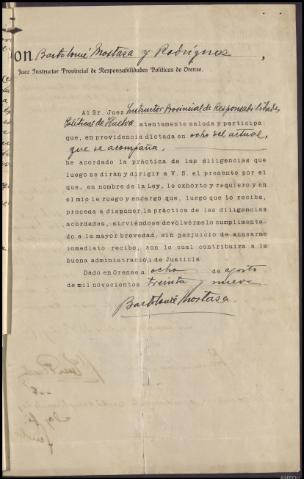 ON Bartolomé Mostaza y Rodríguez,
Juez Instructor Provincial de Responsabilidades Políticas de Orense.
Al Sr. Juez Instructor Provincial de Responsabilidades
Políticas de Huelva atentamente saluda y participa
que, en providencia dictada en ocho del actual,
que se acompaña,
he acordado la práctica de las diligencias que
luego se dirán y dirigir a V. S. el presente por el
que, en nombre de la Ley, le exhorto y requiero y en
el mío le ruego y encargo que, luego lo reciba,
proceda a disponer la práctica de las diligencias
acordadas, sirviéndose devolvérmelo cumplimenta-
do a la mayor brevedad, sin perjuicio de acusarme
inmediato recibo, con lo cual contribuirá a la
buena administración de Justicia
Dado en Orense a ocho de agosto
de mil novecientos treinta y nueve
Bartolomé Mostaza.